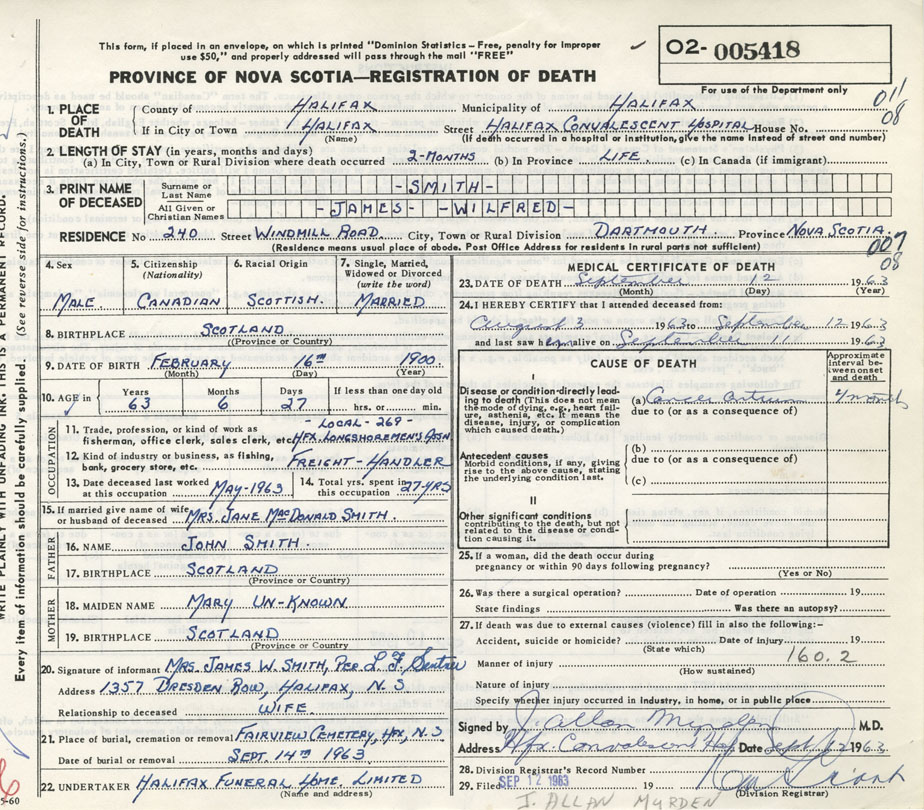 This form, if placed in an envelope, on which is printed "Dominion Statistics – Free, penalty for improper
use $50," and properly addressed will pass through the mail "FREE"
O2- 005418
PROVINCE OF NOVA SCOTIA—REGISTRATION OF DEATH
For use of the Department only
011
08
WRITE PLAINLY WITH UNFADING INK. THIS IS A PERMANENT RECORD.
Every item of information should be carefully supplied. (See reverse side for instructions.)
1. PLACE OF DEATH
County of HALIFAX Municipality of HALIFAX
If in City or Town HALIFAX Street HALIFAX CONVALESCENT HOSPITAL House No.
(Name) (If death occurred in a hospital or institution, give the name instead of street and number)
2. LENGTH OF STAY (in years, months and days)
(a) In City, Town or Rural Division where death occurred 2-MONTHS (b) In Province LIFE. (c) In Canada (if immigrant)
3. PRINT NAME OF DECEASED
Surname or Last Name -SMITH-
All Given or Christian Names -JAMES- -WILFRED-
RESIDENCE No 240 Street WINDMILL ROAD. City, Town or Rural Division DARTMOUTH. Province NOVA SCOTIA.
(Residence means usual place of abode. Post Office Address for residents in rural parts not sufficient)
007
08
4. Sex
MALE.
5. Citizenship
(Nationality)
CANADIAN
6. Racial Origin
SCOTTISH.
7. Single, Married,
Widowed or Divorced
(write the word)
MARRIED
8. BIRTHPLACE SCOTLAND
(Province or Country)
9. DATE OF BIRTH FEBRUARY 16TH 1900
(Month) (Day) (Year)
10. AGE in
Years Months Days If less than one day old
63 6 27 hrs. or min.
OCCUPATION
- LOCAL - 269 -
11. Trade, profession, or kind of work as
fisherman, office clerk, sales clerk, etc HFX. LONGSHOREMEN'S ASN
12. Kind of industry or business, as fishing,
bank, grocery store, etc. FREIGHT-HANDLER
13. Date deceased last worked
at this occupation MAY-1963
14. Total yrs. spent in
this occupation 27-YRS
15. If married give name of wife
or husband of deceased MRS. JANE MACDONALD SMITH.
FATHER
16. NAME JOHN SMITH.
17. BIRTHPLACE SCOTLAND
(Province or Country)
MOTHER
18. MAIDEN NAME MARY UN-KNOWN
19. BIRTHPLACE SCOTLAND
(Province or Country)
20. Signature of informant MRS. JAMES W. SMITH, PER L. F.
Address 1357 DRESDEN ROW, HALIFAX, N.S
Relationship to deceased WIFE.
21. Place of burial, cremation or removal FAIRVIEW CEMETERY, HFX, N.S
Date of burial or removal SEPT. 14TH 1963
22. UNDERTAKER HALIFAX FUNERAL HOME, LIMITED
(Name and address)
5-60
MEDICAL CERTIFICATE OF DEATH
23. DATE OF DEATH September 12 1963
(Month) (Day) (Year)
24. I HEREBY CERTIFY that I attended deceased from:
August 3 1963 to September 12 1963
and last saw him alive on September 11 1963
CAUSE OF DEATH
Approximate
interval between
onset
and death
I
Disease or condition directly leading
to death (This does not mean
the mode of dying, e.g., heart failure,
asthenia, etc. It means the
disease, injury, or complication
which caused death.)
(a) Cancer 4 months
due to (or as a consequence of)
Antecedent causes
Morbid conditions, if any, giving
rise to the above cause, stating
the underlying condition last.
(b)
due to (or as a consequence of)
(c)
II
Other significant conditions
contributing to the death, but not
related to the disease or condition
causing it.
25. If a woman, did the death occur during
pregnancy or within 90 days following pregnancy?
(Yes or No)
26. Was there a surgical operation? Date of operation 19
State findings Was there an autopsy?
27. If death was due to external causes (violence) fill in also the following:–
Accident, suicide or homicide? Date of injury 19
(State which)
160.2
Manner of injury
(How sustained)
Nature of injury
Specify whether injury occurred in industry, in home, or in public place
Signed by J. Allan M.D.
Address Hfx. Convalescent Hosp Date Sept 12 1963
28. Division Registrar's Record Number
29. Filed SEP 12 1963 19
(Division Registrar)
J. ALLAN MYRDEN